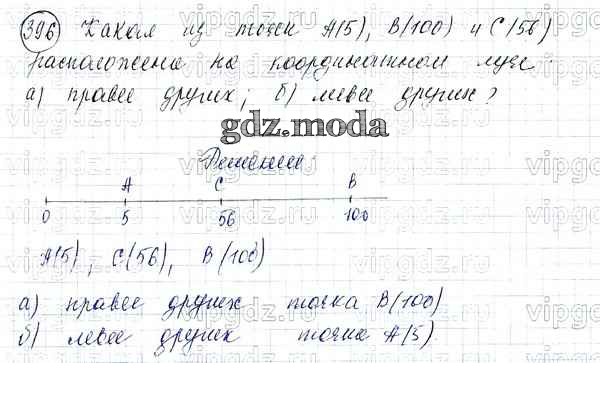 396 Какая из точек А(5), В(100) и С(56)
расположена на координатном луче
а) правее других; б) левее других?
gdz.moda
Решение:
А С В
0 5 56 100
А(5), С(56), В(100)
а) правее других точка В(100)
б) левее других точка А(5).
vipgdz.ru